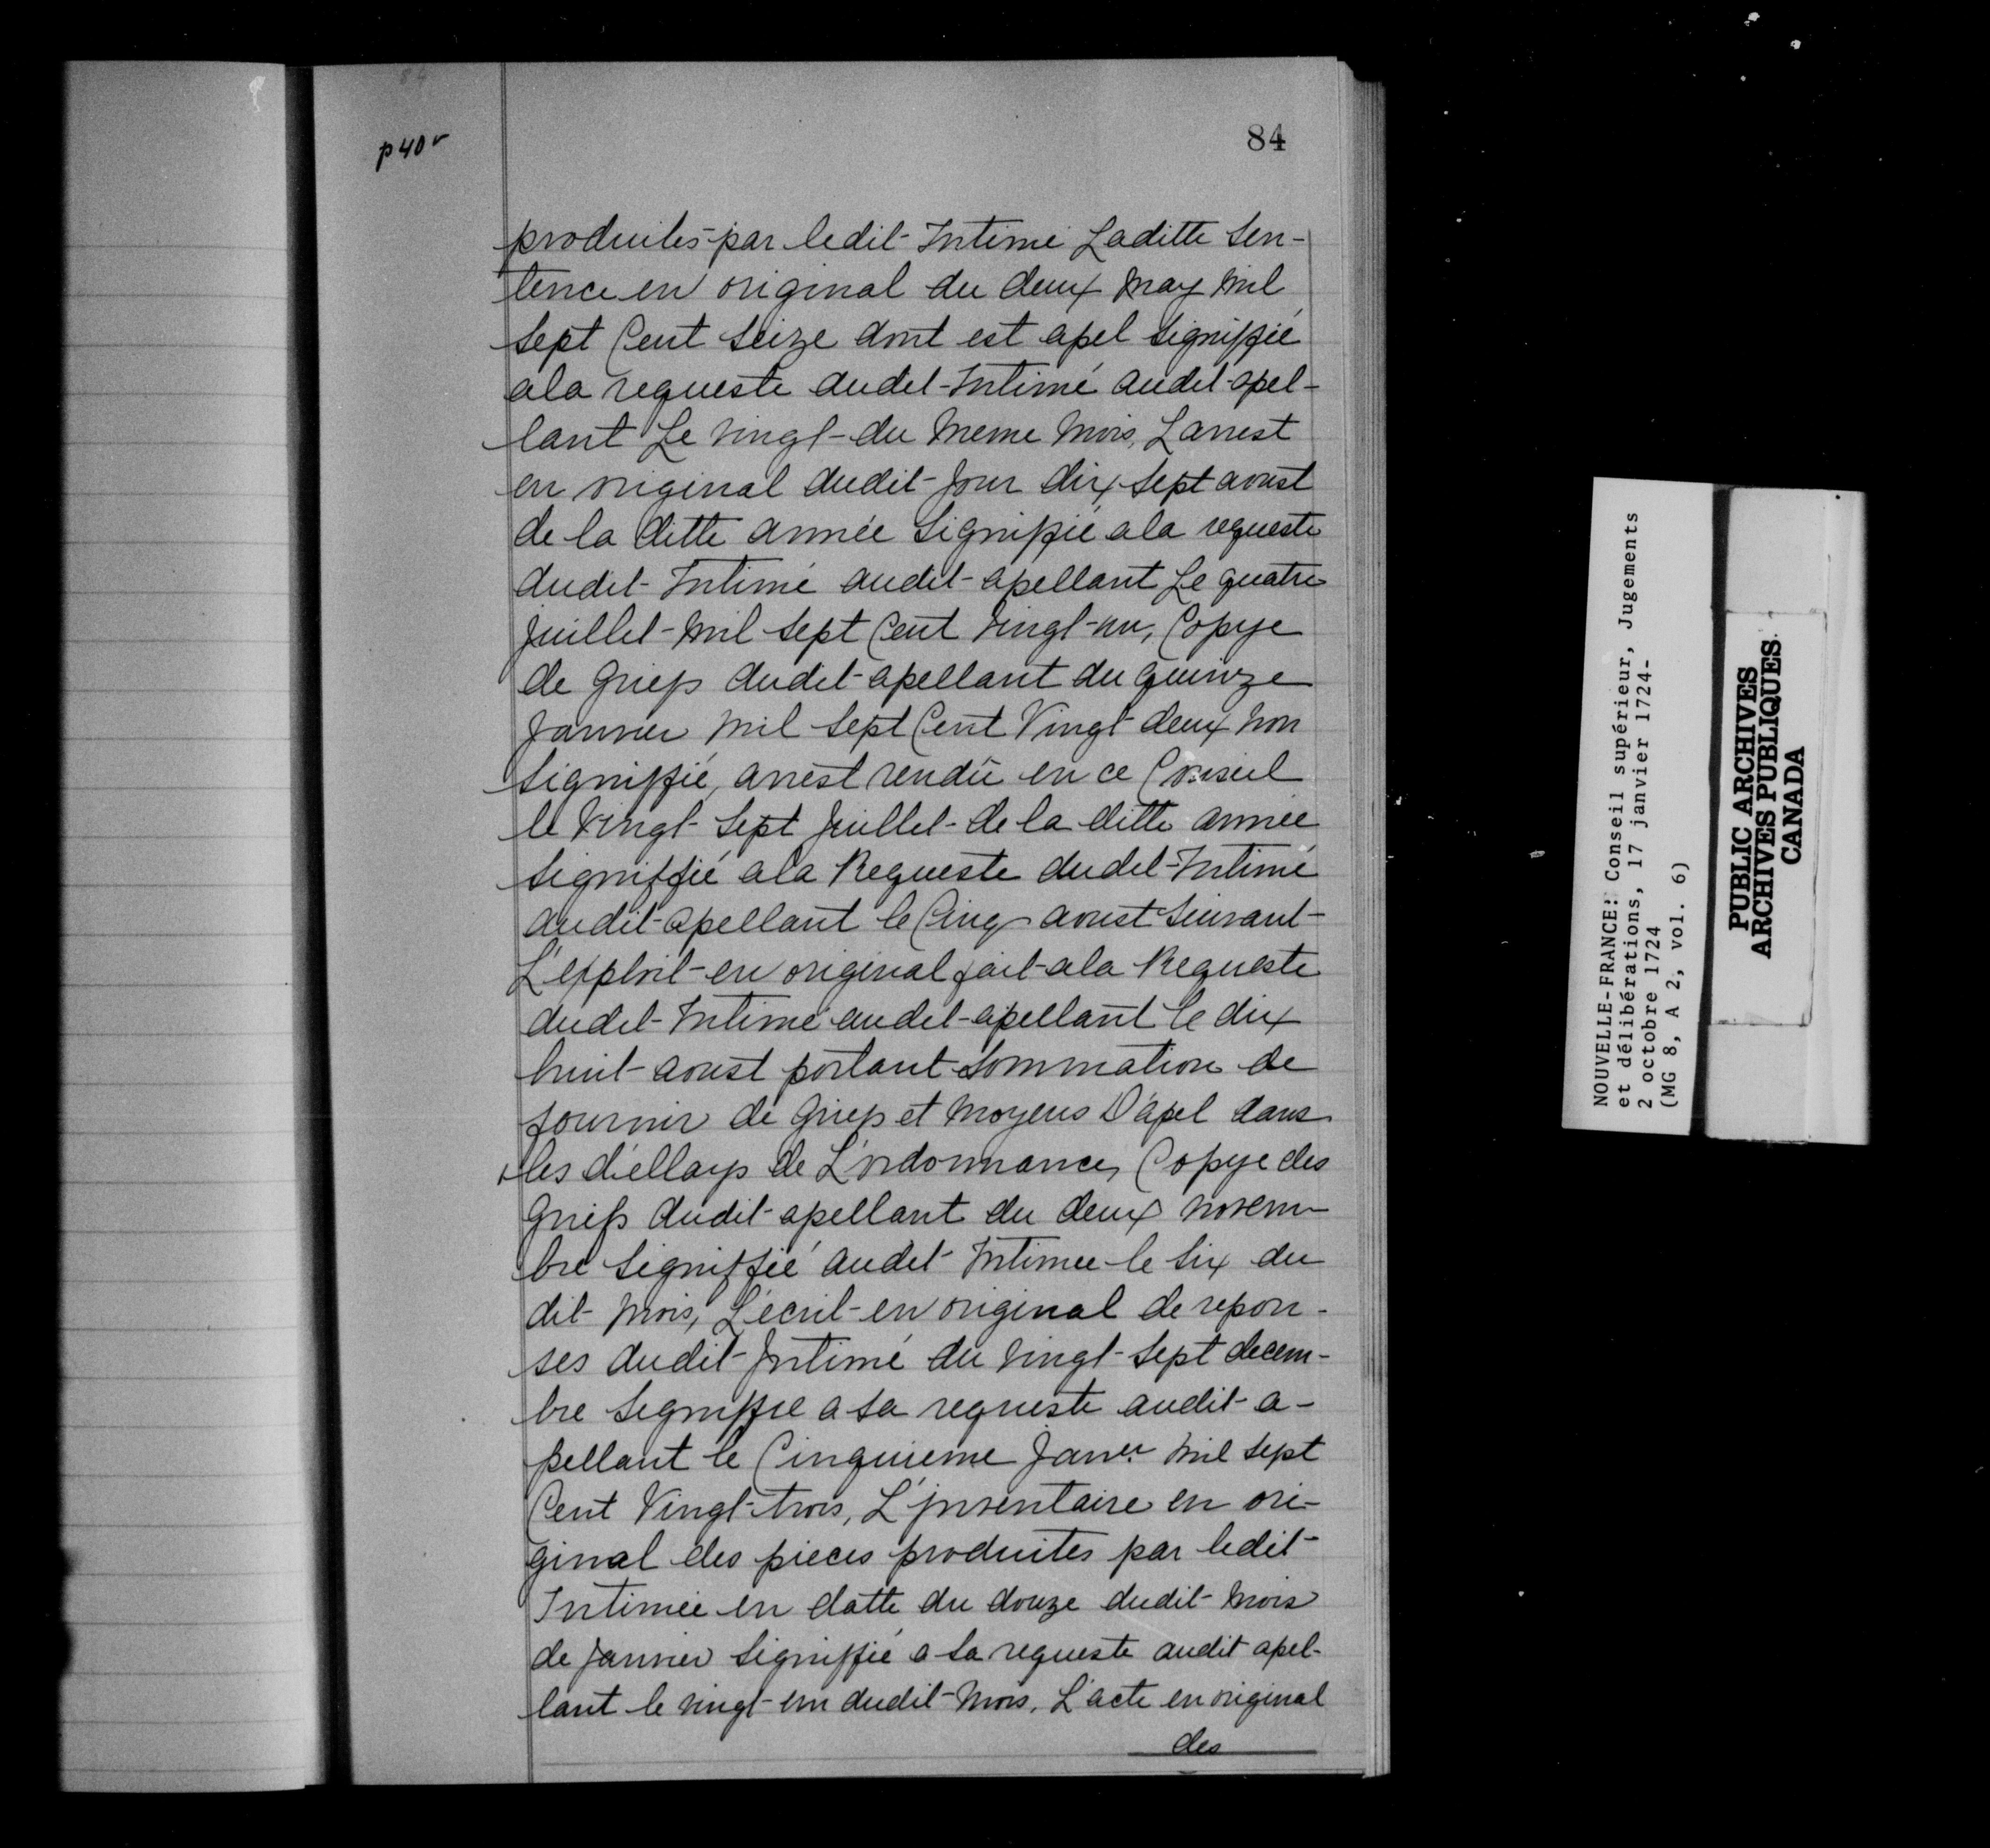 84
p 40 v
84
produites par ledit Intimé Laditte Sen-
tence en original du deux may mil
Sept Cent Seize dont est apel Signiffié
ala requeste dudit Intimé audit apel-
lant Le vingt du meme mois, Larrest
en original dudit Jour dix Sept aoust
de la ditte année Signiffié ala requeste
dudit Intimé audit apellant Le quatre
juillet mil Sept Cent Vingt un, Copye
de griefs dudit apellant du quinze
Janvier mil Sept Cent Vingt deux non
Signiffié, arrest rendü en ce Conseil
le Vingt Sept Juillet de la ditte année
Signiffié ala Requeste dudit Intimé
audit apellant le Cinq aoust Suivant
L'exploit en original fait ala Requeste
dudit Intimé audit apellant le dix
huit aoust portant Sommation de
fournir de griefs et moyens D'apel dans
les déllays de L'ordonnance, Copye des
griefs dudit apellant du deux novem
bre Signiffié audit Intimée le Six du
dit mois, L'écrit en original de repon-
ses dudit Intimé du vingt Sept decem-
bre Signiffié a Sa requeste audit a-
pellant le Cinquieme Janver. mil Sept
Cent Vingt trois, L'jnventaire en ori-
ginal des pieces produites par ledit
Intimée en datte du douze dudit mois
de Janvier Signiffié a Sa requeste audit apel-
lant le vingt un dudit mois. L'acte en original
des
NOUVELLE-FRANCE: Conseil supérieur, Jugements
et délibérations, 17 janvier 1724-
2 octobre 1724
(MG 8, A 2, vol. 6)
PUBLIC ARCHIVES
ARCHIVES PUBLIQUES
CANADA